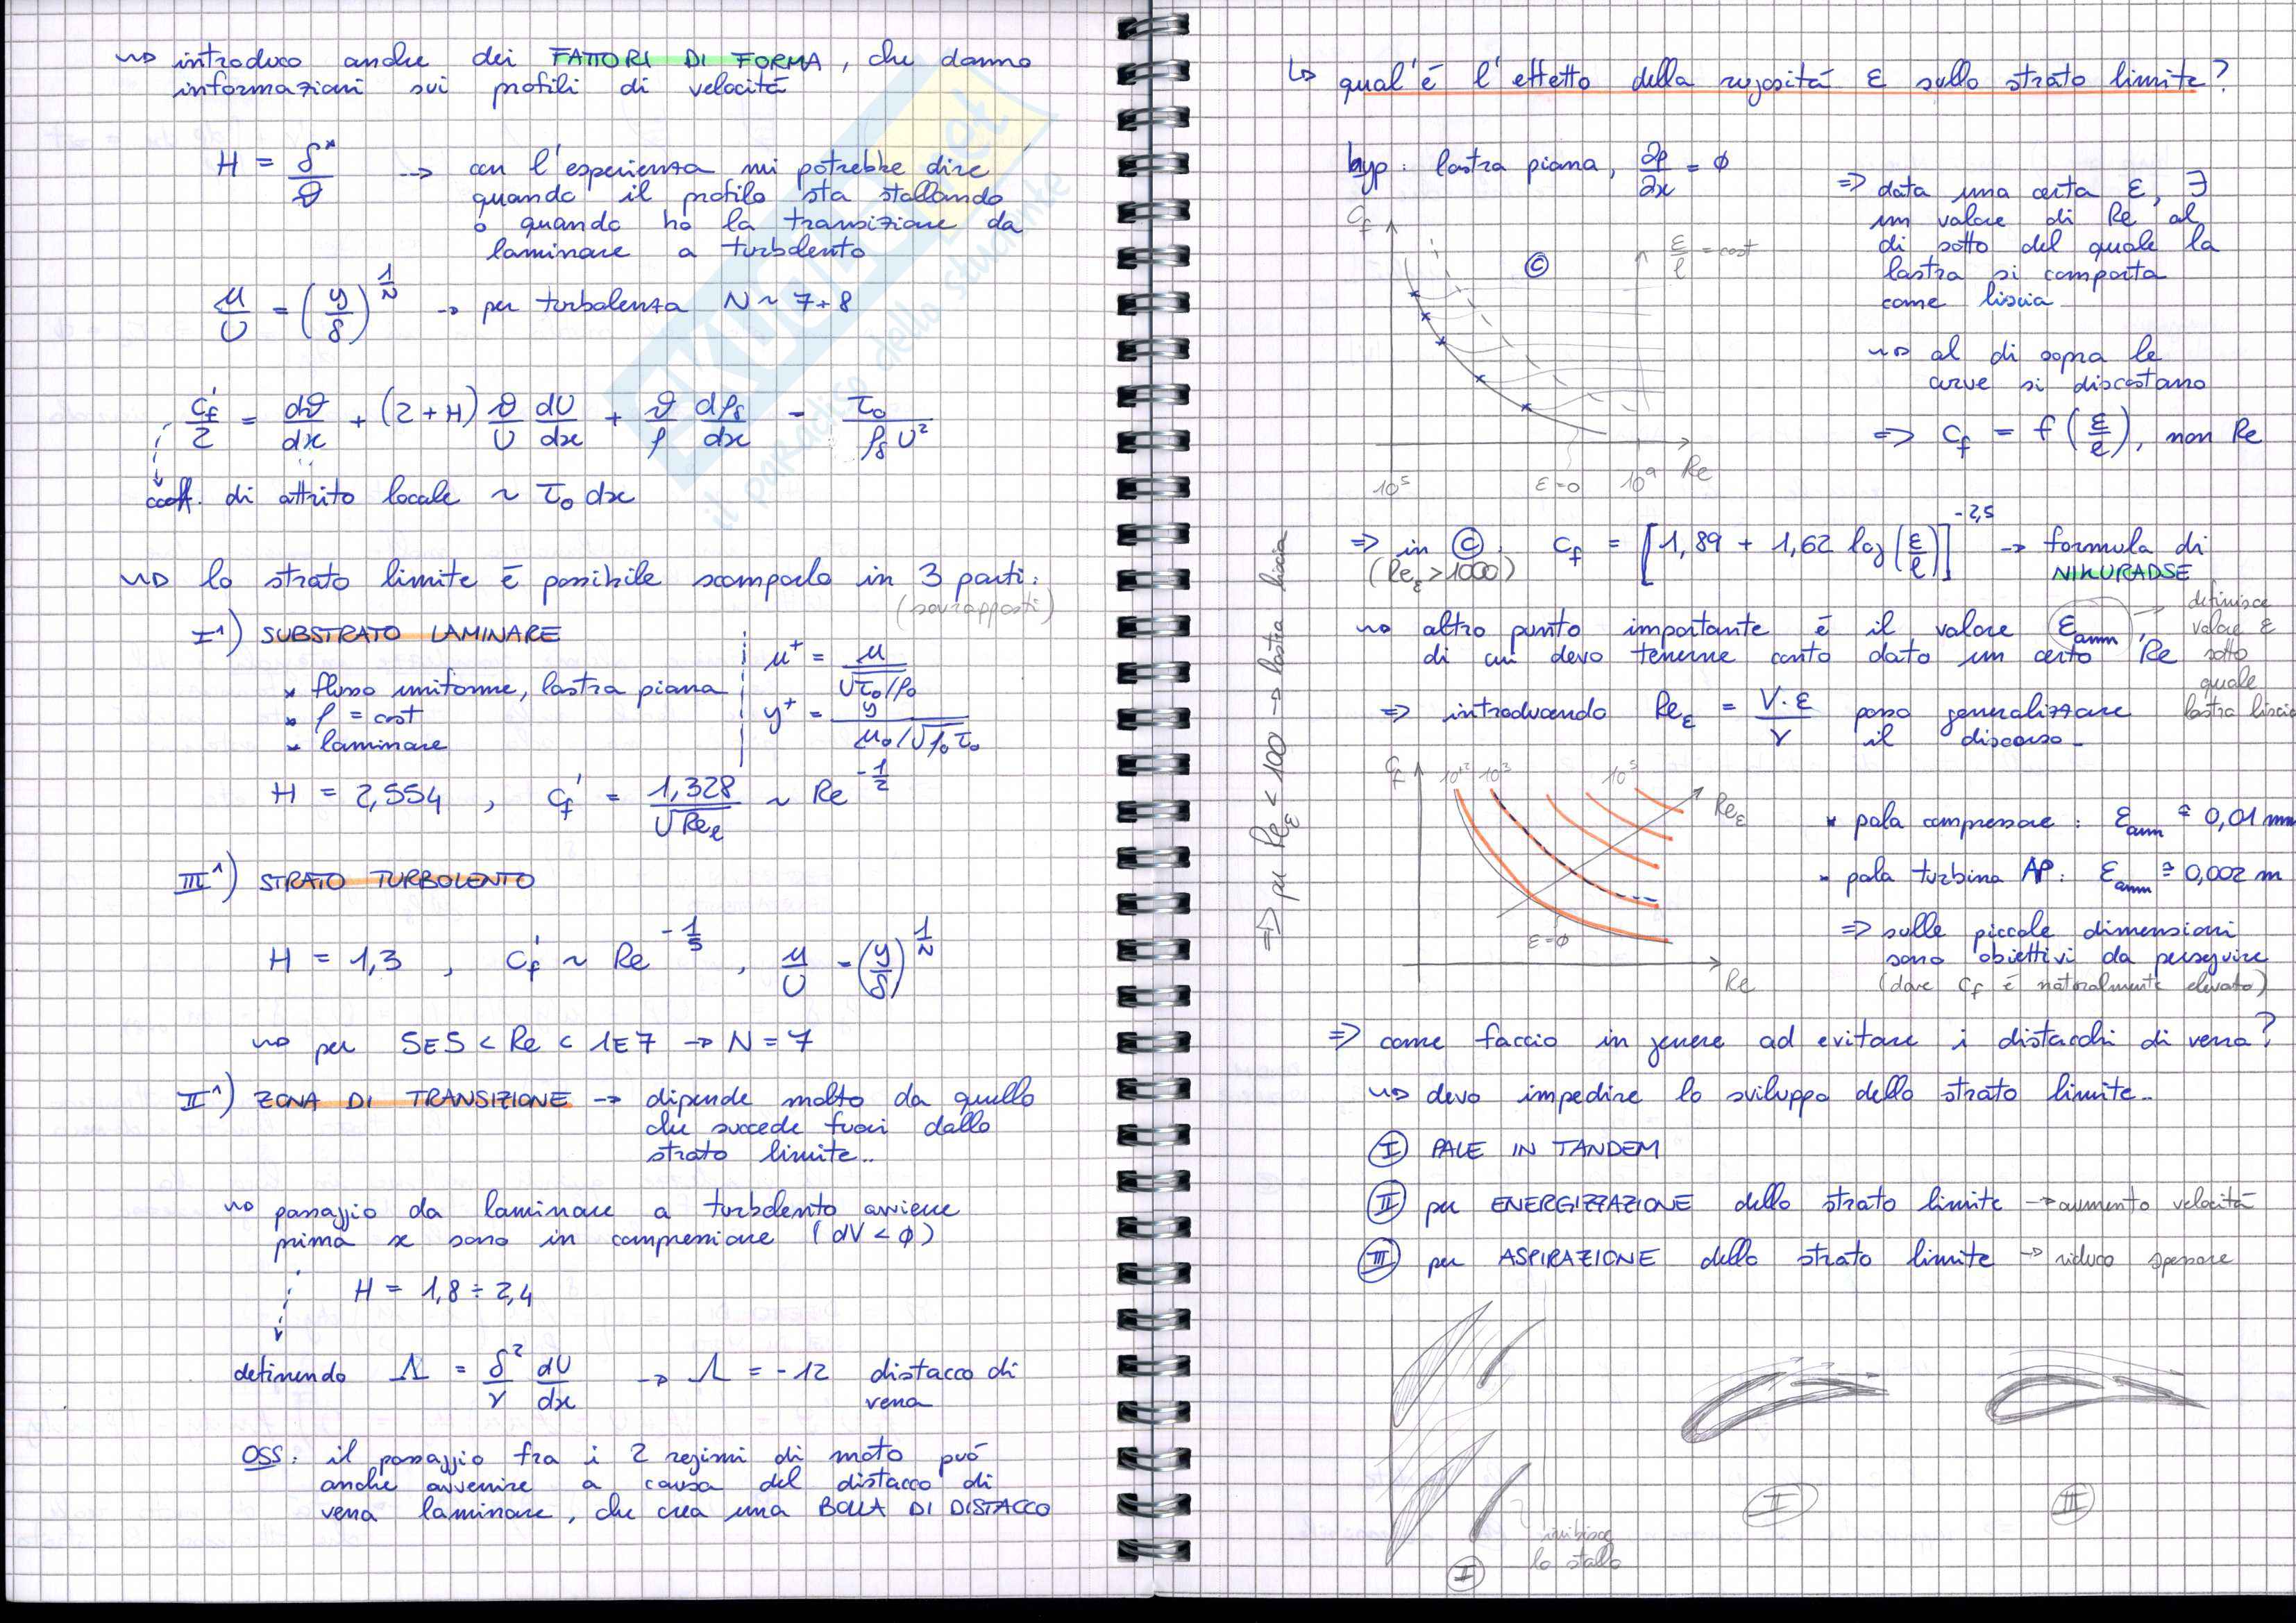 ↝ introduco anche dei FATTORI DI FORMA, che danno
informazioni sui profili di velocità
H = δ*/ϑ → con l'esperienza mi potrebbe dire
quando il profilo sta stallando
o quando ho la transizione da
laminare a turbolento
u/U = (y/δ)^(1/N) → per turbolenza N ~ 7÷8
Cf'/2 = dϑ/dx + (2+H) ϑ/U dU/dx + ϑ/ρ dρδ/dx = τ₀/(ρδ U²)
coeff. di attrito locale ~ τ₀ dx
↝ lo strato limite è possibile scomporlo in 3 parti:
(sovrapposti)
I^) SUBSTRATO LAMINARE
* flusso uniforme, lastra piana
* ρ = cost
* laminare
u⁺ = u/√(τ₀/ρ₀)
y⁺ = y/(μ₀/√(ρ₀τ₀))
H = 2,554 , Cf' = 1,328/√Reℓ ~ Re^(-1/2)
III^) STRATO TURBOLENTO
H = 1,3 , Cf' ~ Re^(-1/5) , u/U = (y/δ)^(1/N)
↝ per 5E5 < Re < 1E7 → N = 7
II^) ZONA DI TRANSIZIONE → dipende molto da quello
che succede fuori dallo
strato limite..
↝ passaggio da laminare a turbolento avviene
prima se sono in compressione (dV < ϕ)
H = 1,8 ÷ 2,4
definendo Λ = δ²/ν dU/dx → Λ = -12 distacco di
vena
OSS: il passaggio fra i 2 regimi di moto può
anche avvenire a causa del distacco di
vena laminare, che crea una BOLLA DI DISTACCO
SKUOLA.net
il paradiso dello studente
↳ qual'è l'effetto della rugosità ε sullo strato limite?
hyp: lastra piana, ∂p/∂x = ϕ
Cf
Ⓒ
ε/ℓ = cost
10⁵
ε=0
10⁹
Re
⇒ data una certa ε, ∃
un valore di Re al
di sotto del quale la
lastra si comporta
come liscia
↝ al di sopra le
curve si discostano
⇒ Cf = f(ε/ℓ), non Re
⇒ in Ⓒ: Cf = [1,89 + 1,62 log(ε/ℓ)]^(-2,5) → formula di
(Reε > 1000)
NIKURADSE
↝ altro punto importante è il valore εamm,
di cui devo tenerne conto dato un certo Re
→ definisce
valore ε
sotto
quale
lastra liscia
⇒ introducendo Reε = V·ε/ν posso generalizzare
il discorso
⇒ per Reε < 100 → lastra liscia
Cf
10² 10³ 10⁵
Reε
ε=ϕ
Re
* pala compressore: εamm ≅ 0,01 mm
* pala turbina AP: εamm ≅ 0,002 m
⇒ sulle piccole dimensioni
sono obiettivi da perseguire
(dove Cf è naturalmente elevato)
⇒ come faccio in genere ad evitare i distacchi di vena?
↝ devo impedire lo sviluppo dello strato limite..
Ⓘ PALE IN TANDEM
Ⅱ per ENERGIZZAZIONE dello strato limite → aumento velocità
Ⅲ per ASPIRAZIONE dello strato limite → riduco spessore
inibisce
lo stallo
Ⅰ
Ⅱ